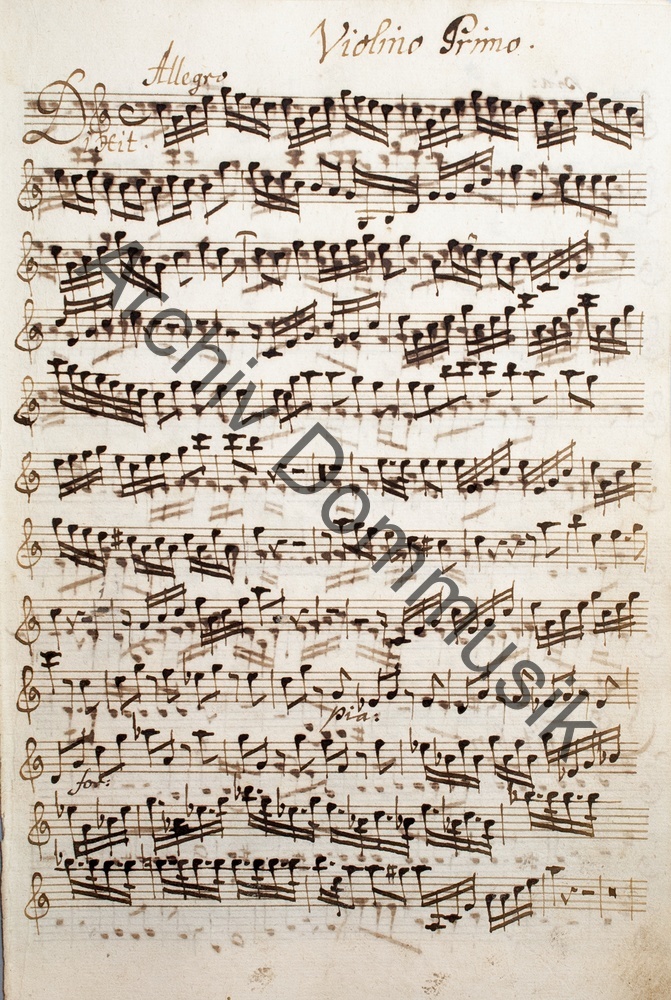 Violino Primo.
Allegro
Dixit.
pia:
for:
Archiv Dommusik